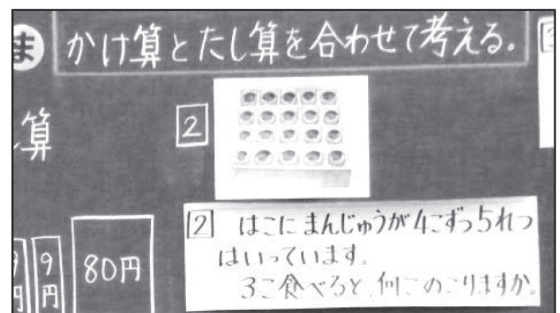 ま かけ算とたし算を合わせて考える。
算
2
9円
80円
2 はこにまんじゅうが4こずつ5れつ
はいっています。
3こ食べると、何このこりますか。